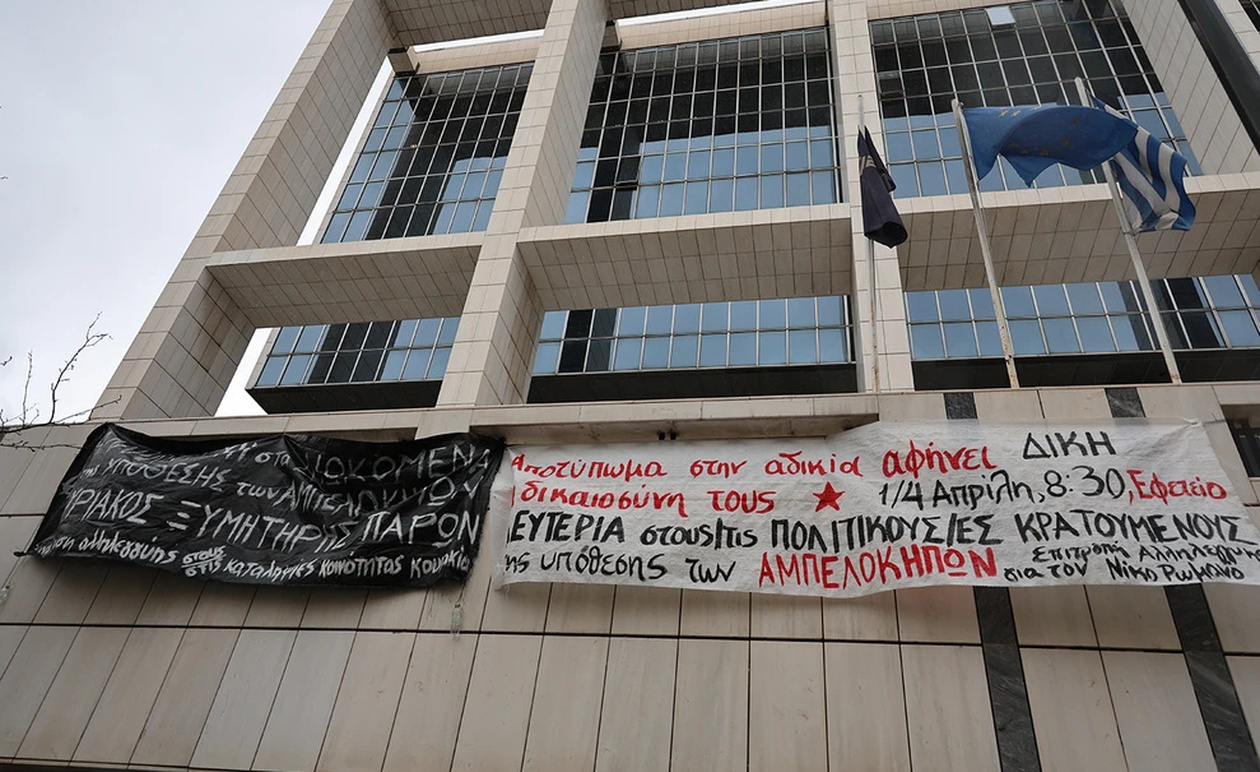 στα ΔΙΩΚΟΜΕΝΑ
της ΥΠΟΘΕΣΗΣ των ΑΜΠΕΛΟΚΗΠΩΝ
ΥΡΙΑΚΟΣ ΞΥΜΗΤΗΡΗΣ ΠΑΡΩΝ
αλληλεγγύης στους
στις καταλήψεις κοινότητας
Αποτύπωμα στην αδικία αφήνει
δικαιοσύνη τους ★
ΔΙΚΗ
1/4 Απρίλη, 8:30, Εφετείο
ΕΥΤΕΡΙΑ στους/τις ΠΟΛΙΤΙΚΟΥΣ/ΕΣ ΚΡΑΤΟΥΜΕΝΟΥΣ
της υπόθεσης των ΑΜΠΕΛΟΚΗΠΩΝ
Επιτροπή Αλληλεγγυ
για τον Νίκο Ρωμανο